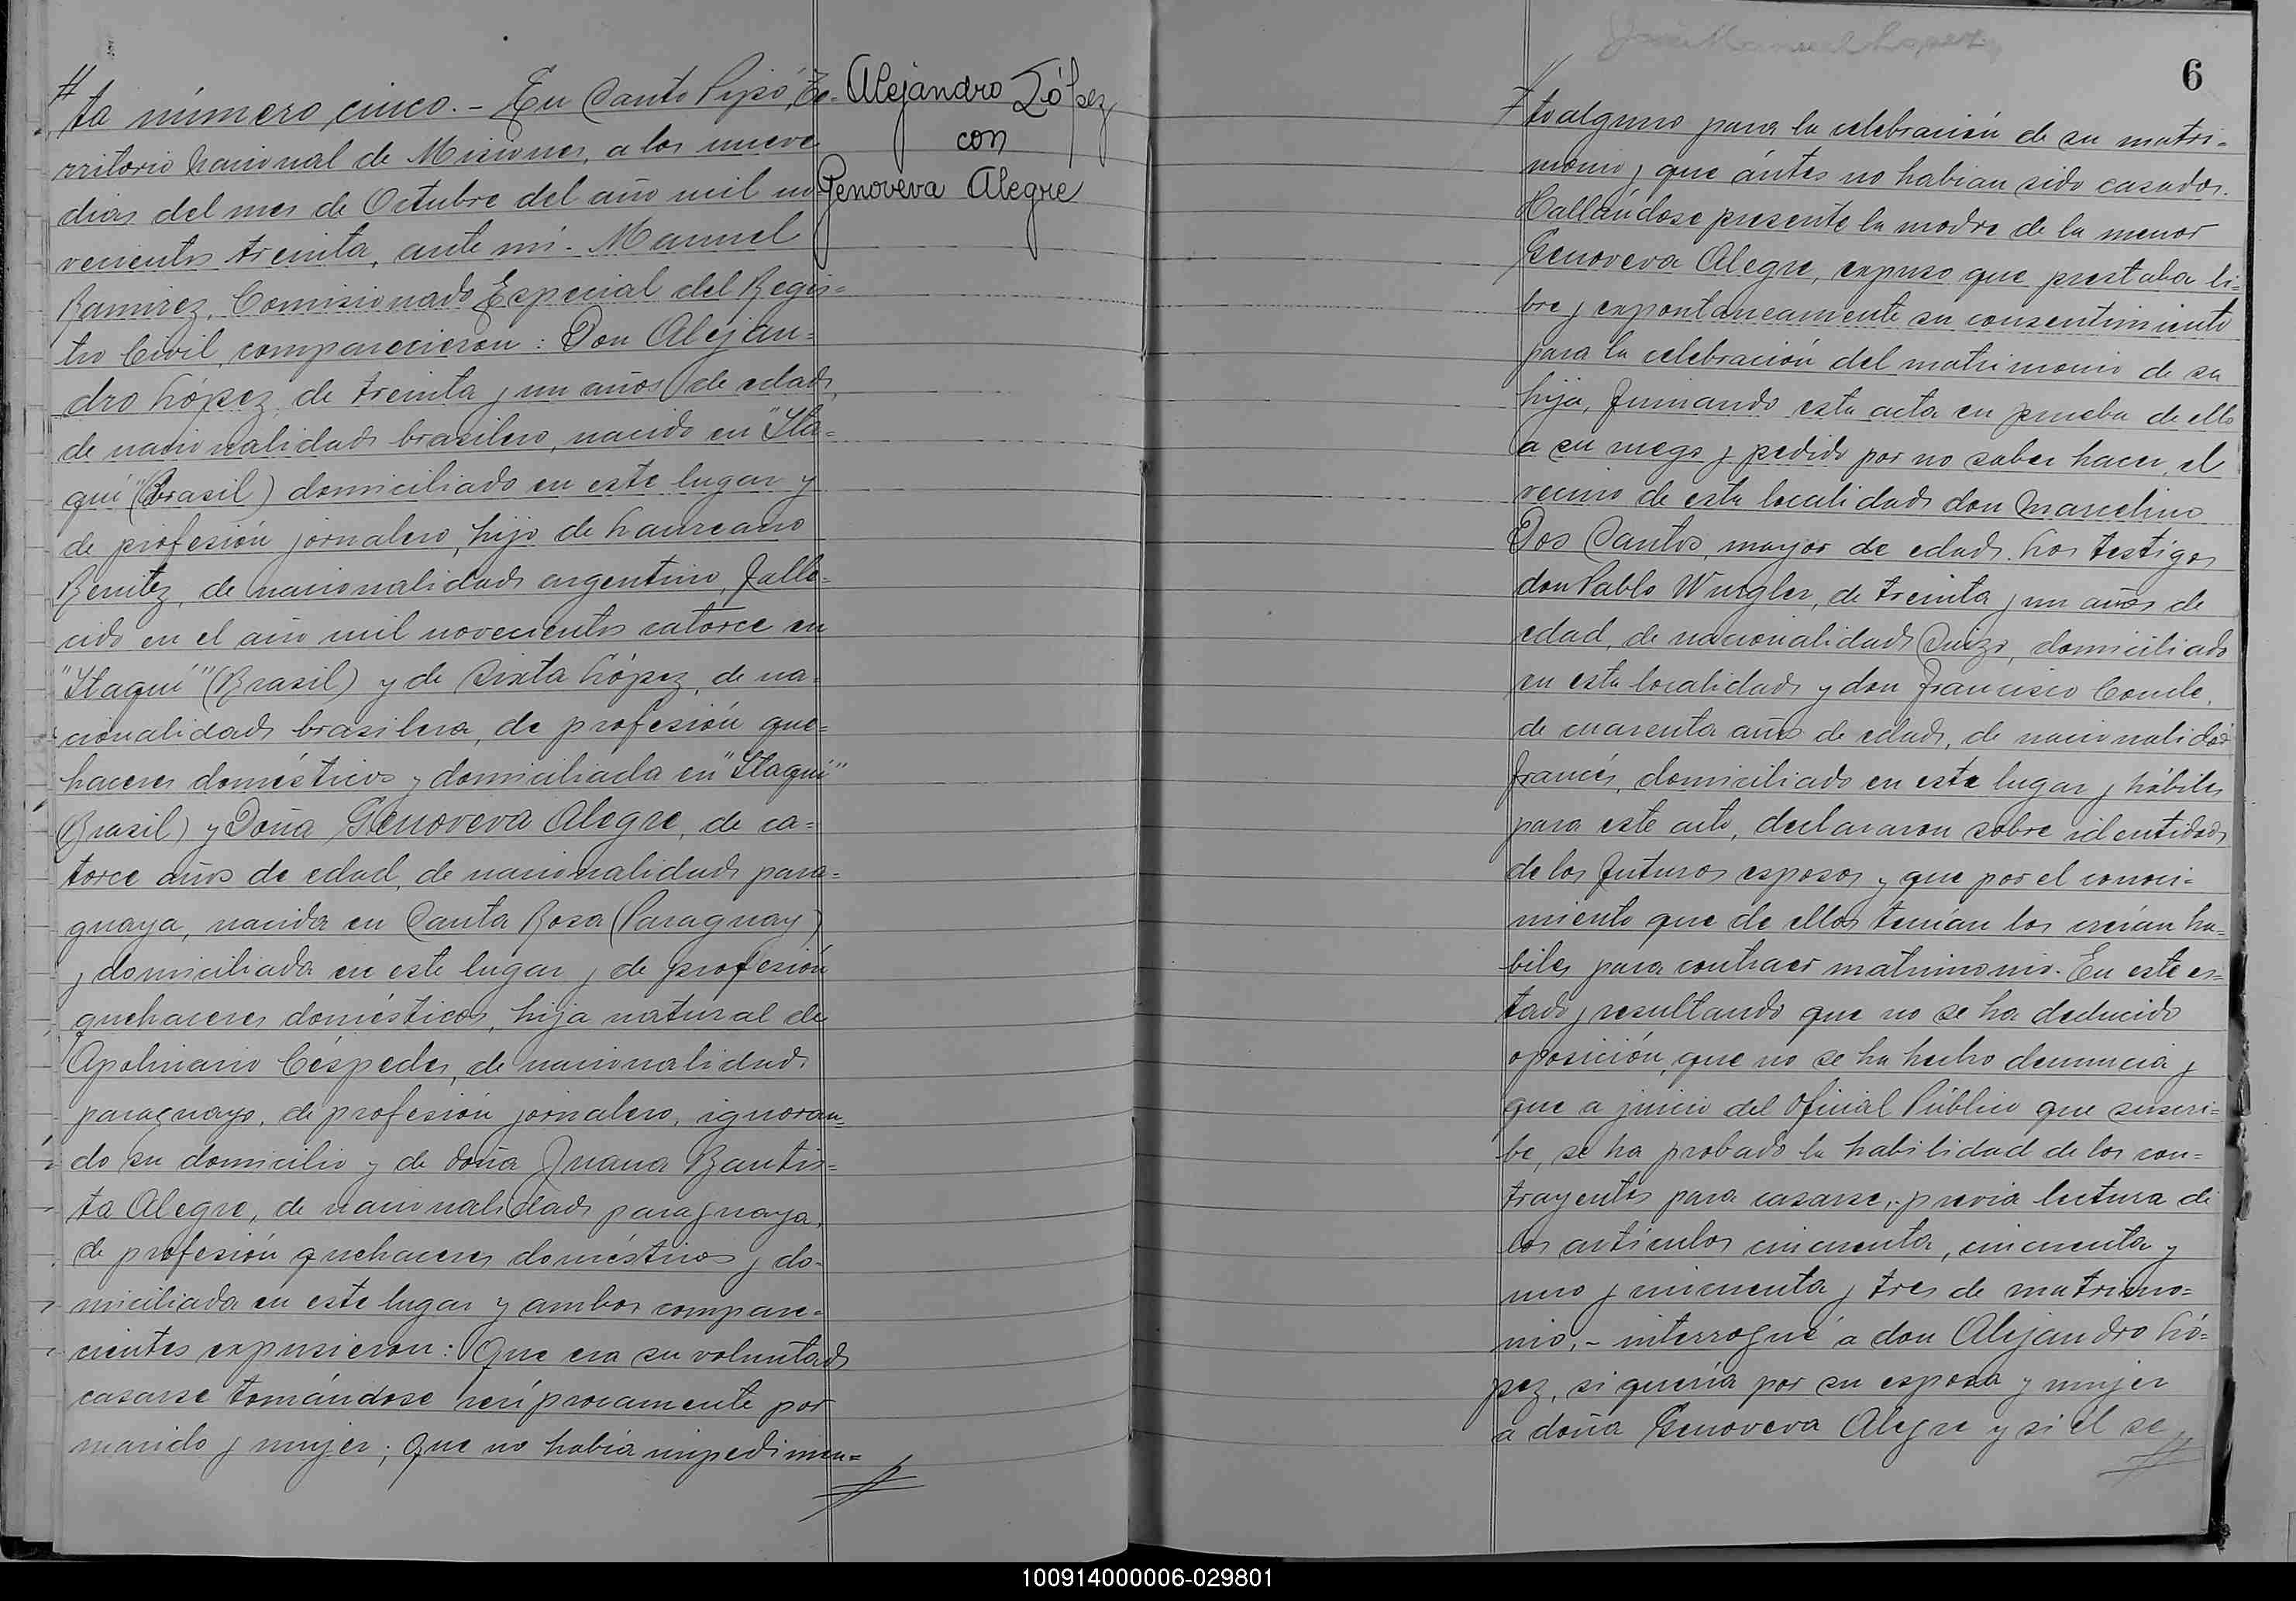 ta número cinco.- En Santo Pipó, Te-
rritorio Nacional de Misiones, a los nueve
dias del mes de Octubre del año mil no
vecientos treinta, ante mi. Manuel
Ramirez, Comisionado Especial del Regis=
tro Civil, comparecieron: Don Alejan=
dro López, de treinta y un años de edad,
de nacionalidad brasilero, nacido en "Ita=
qui" (Brasil) domiciliado en este lugar y
de profesión jornalero, hijo de Laureano
Benitez, de nacionalidad argentino, falle=
cido en el año mil novecientos catorce en
"Itaqui" (Brasil) y de Sixta López, de na=
cionalidad brasilera, de profesión que=
haceres domésticos y domiciliada en "Itaqui"
(Brasil) y Doña Genoveva Alegre, de ca=
torce años de edad, de nacionalidad para=
guaya, nacida en Santa Rosa (Paraguay)
y domiciliada en este lugar y de profesión
quehaceres domésticos, hija natural de
Apolinario Céspedes, de nacionalidad
paraguayo, de profesión jornalero, ignoran=
do su domicilio y de doña Juana Bautis=
ta Alegre, de nacionalidad paraguaya,
de profesión quehaceres domésticos y do-
miciliada en este lugar y ambos compare=
cientes expusieron: Que era su voluntad
casarse tomándose reciprocamente por
marido y mujer; que no había impedimen=
Alejandro López
con
Genoveva Alegre
6
to alguno para la celebración de su matri-
monio y que ántes no habian sido casados.
Hallándose presente la madre de la menor
Genoveva Alegre, expuso que prestaba li=
bre y expontaneamente su consentimiento
para la celebración del matrimonio de su
hija, firmando esta acta en prueba de ello
a su ruego y pedido por no saber hacer, el
vecino de esta localidad don Marcelino
Dos Santos, mayor de edad. Los testigos
don Pablo Wurgler, de treinta y un años de
edad, de nacionalidad Suizo, domiciliado
en esta localidad y don Francisco Comle,
de cuarenta años de edad, de nacionalidad
francés, domiciliado en este lugar y hábiles
para este acto, declararon sobre identidad
de los futuros esposos y que por el conoci-
miento que de ellos tenian los creían há=
biles para contraer matrimonio. En este es=
tado y resultando que no se ha deducido
oposición, que no se ha hecho denuncia y
que a juicio del Oficial Público que suscri=
be, se ha probado la habilidad de los con=
trayentes para casarse, previa lectura de
los artículos cincuenta, cincuenta y
uno y cincuenta y tres de matrimo=
nio,- interrogué a don Alejandro Ló=
pez, si quería por su esposa y mujer
a doña Genoveva Alegre y si él se
100914000006-029801